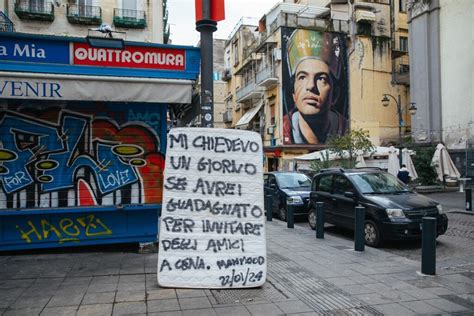 Mia
QUATTROMURA
VENIR
FOR
LOVE
MI CHIEDEVO
UN GIORNO
SE AVREI
GUADAGNATO
PER INVITARE
DEGLI AMICI
A CENA. MAHMOOD
22/01/24